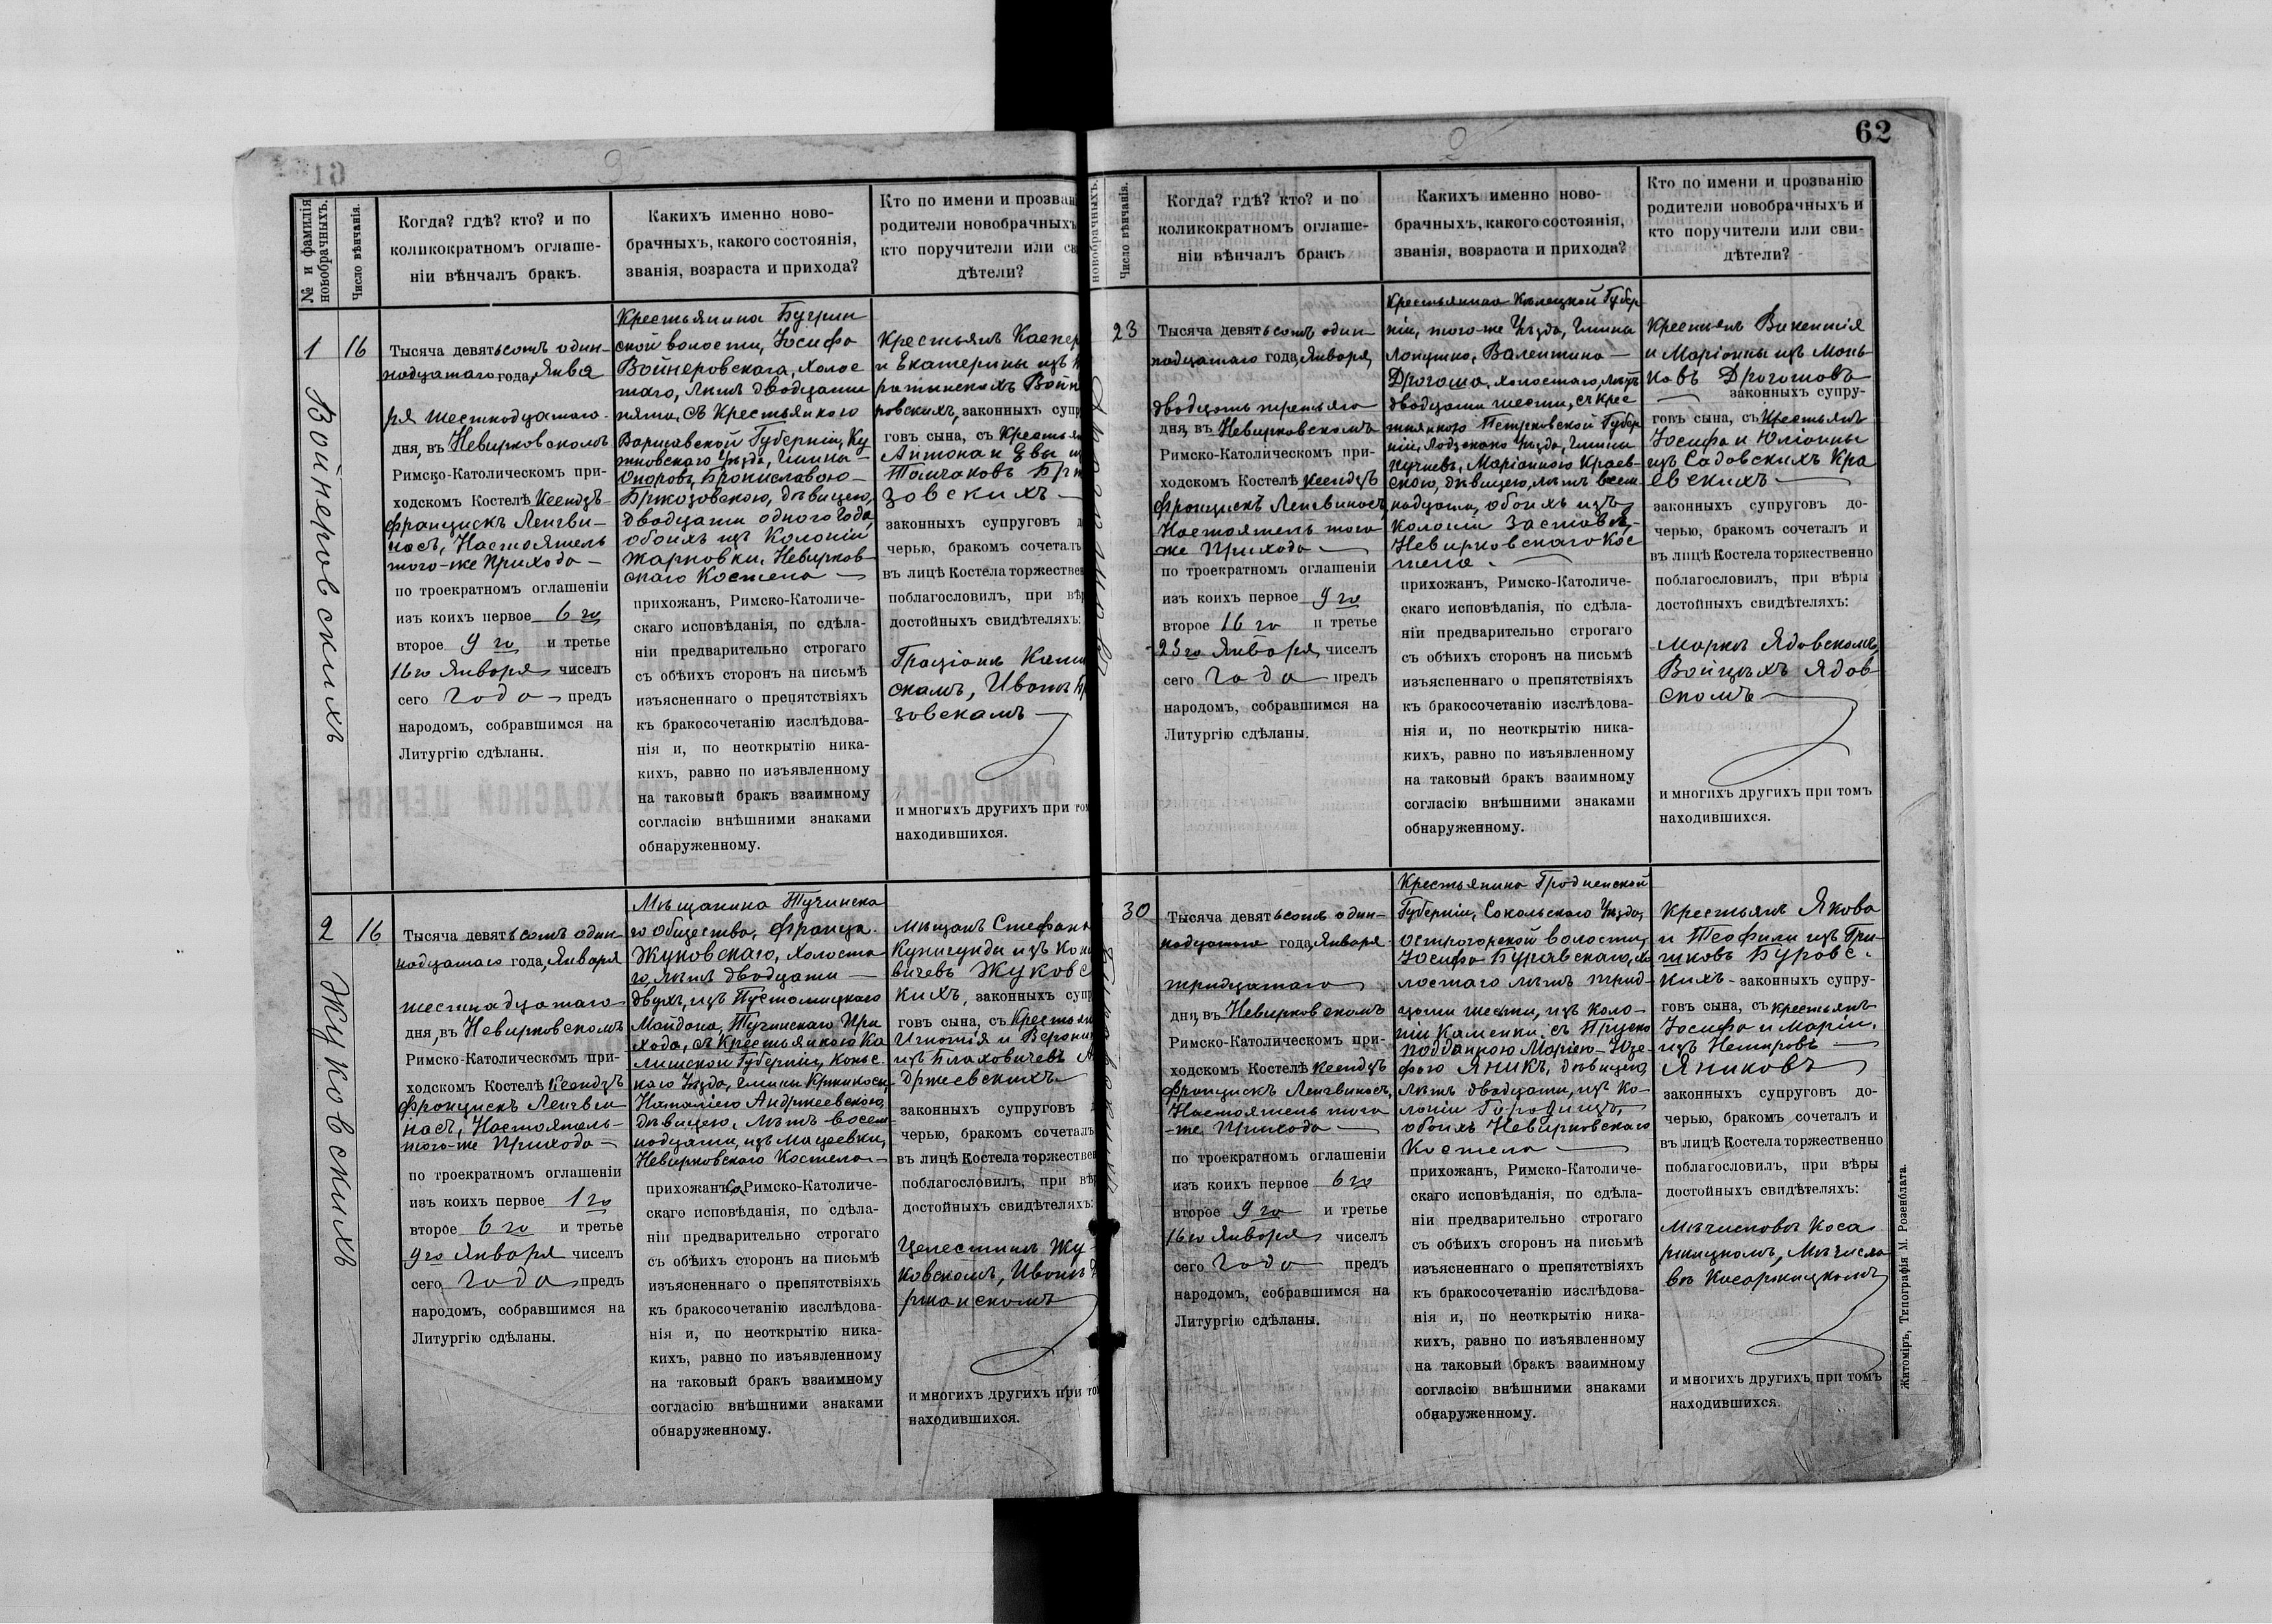 62
№ и фамилія новобрачныхъ.
Число вѣнчанія.
Когда? гдѣ? кто? и по
коликократномъ оглаше-
ніи вѣнчалъ бракъ.
Какихъ именно ново-
брачныхъ, какого состоянія,
званія, возраста и прихода?
Кто по имени и прозван
родители новобрачныхъ
кто поручители или св
дѣтели?
1
16
Войнеровскихъ
Тысяча девятьсотъ один-
надцатаго года, Янва
ря шестнадцатаго
дня, въ Невирковскомъ
Римско-Католическомъ при-
ходскомъ Костелѣ Ксендзъ
Францискъ Ленгви-
насъ, Настоятель
того-же Прихода
по троекратномъ оглашеніи
изъ коихъ первое 6 го
второе 9 го и третье
16 го Января чиселъ
сего года предъ
народомъ, собравшимся на
Литургію сдѣланы.
Крестьянина Бугрин
ской волости, Іосифа
Войнеровскаго, холос
таго, лѣтъ двадцати
пяти, съ Крестьянкою
Варшавской Губерніи, Ку
тновскаго Уѣзда, Гмины
Опоровъ, Брониславою
Бржозовскою, дѣвицею,
двадцати одного года,
обоихъ изъ Колоніи
Жарновки, Невирков-
скаго Костела
прихожанъ, Римско-Католиче-
скаго исповѣданія, по сдѣла-
ніи предварительно строгаго
съ обѣихъ сторонъ на письмѣ
изъясненнаго о препятствіяхъ
къ бракосочетанію изслѣдова-
нія и, по неоткрытію ника-
кихъ, равно по изъявленному
на таковый бракъ взаимному
согласію внѣшними знаками
обнаруженному.
Крестьянъ Каспер
и Екатерины изъ
ратынскихъ Войн
ровскихъ, законныхъ супр
говъ сына, съ Крестьян
Антона и Евы
Томчаковъ Брж
зовскихъ
законныхъ супруговъ
черью, бракомъ сочеталъ
въ лицѣ Костела торжествен
поблагословилъ, при вѣр
достойныхъ свидѣтеляхъ:
скамъ, Иваномъ
зовскомъ
и многихъ другихъ при том
находившихся.
2
16
Жуковскихъ
Тысяча девятьсотъ один-
надцатаго года, Января
шестнадцатаго
дня, въ Невирковскомъ
Римско-Католическомъ при-
ходскомъ Костелѣ Ксендзъ
Францискъ Ленгви
насъ, Настоятель
того-же Прихода
по троекратномъ оглашеніи
изъ коихъ первое 1 го
второе 6 го и третье
9 го Января чиселъ
сего года предъ
народомъ, собравшимся на
Литургію сдѣланы.
Мѣщанина Тучинска
го общества, Франца
Жуковскаго, холоста
го, лѣтъ двадцати
двухъ, изъ Пустомытскаго
Майдана, Тучинскаго При
хода, съ Крестьянкою Ка
лишской Губерніи, Коньс
каго Уѣзда, Гмины
Наталіею Андржеевскою,
дѣвицею, лѣтъ восем
надцати, изъ Мацеевки,
Невирковскаго Костела
прихожанъ, Римско-Католиче-
скаго исповѣданія, по сдѣла-
ніи предварительно строгаго
съ обѣихъ сторонъ на письмѣ
изъясненнаго о препятствіяхъ
къ бракосочетанію изслѣдова-
нія и, по неоткрытію ника-
кихъ, равно по изъявленному
на таковый бракъ взаимному
согласію внѣшними знаками
обнаруженному.
Мѣщанъ Стефана
Кунигунды изъ
вичевъ Жуковс
кихъ, законныхъ супр
говъ сына, съ Крестьян
Игнатія и Верони
изъ Влаховичевъ
држеевскихъ
законныхъ супруговъ
черью, бракомъ сочеталъ
въ лицѣ Костела торжествен
поблагословилъ, при вѣр
достойныхъ свидѣтеляхъ:
Целестинъ Жу
ковскомъ, Иваномъ
ржанскомъ
и многихъ другихъ при том
находившихся.
новобрачныхъ.
Число вѣнчанія.
Когда? гдѣ? кто? и по
коликократномъ оглаше-
ніи вѣнчалъ бракъ
Какихъ именно ново-
брачныхъ, какого состоянія,
званія, возраста и прихода?
Кто по имени и прозванію
родители новобрачныхъ и
кто поручители или сви-
дѣтели?
23
Тысяча девятьсотъ один-
надцатаго года, Января,
двадцать третьяго
дня, въ Невирковскомъ
Римско-Католическомъ при-
ходскомъ Костелѣ Ксендзъ
Францискъ Ленгвинасъ,
Настоятель того
же Прихода
по троекратномъ оглашеніи
изъ коихъ первое 9 го
второе 16 го и третье
23 го Января чиселъ
сего года предъ
народомъ, собравшимся на
Литургію сдѣланы.
Крестьянина Кѣлецкой Губер
ніи, того-же Уѣзда, Гмины
Лопушно, Валентина
Дрогоша, холостаго, лѣтъ
двадцати шести, съ Крес
тьянкою Петрковской Губер
ніи, Лодзскаго Уѣзда, Гмины
Пучневъ, Маріанною Краев-
скою, дѣвицею, лѣтъ восем
надцати, обоихъ изъ
Колоніи Заставье,
Невирковскаго Кос
тела.
прихожанъ, Римско-Католиче-
скаго исповѣданія, по сдѣла-
ніи предварительно строгаго
съ обѣихъ сторонъ на письмѣ
изъясненнаго о препятствіяхъ
къ бракосочетанію изслѣдова-
нія и, по неоткрытію ника-
кихъ, равно по изъявленному
на таковый бракъ взаимному
согласію внѣшними знаками
обнаруженному.
Крестьянъ Викентія
и Маріанны изъ Мань-
ковъ Дрогошовъ
законныхъ супру-
говъ сына, съ Крестьянъ
Іосифа и Юліанны
изъ Садовскихъ Кра
евскихъ
законныхъ супруговъ до-
черью, бракомъ сочеталъ и
въ лицѣ Костела торжественно
поблагословилъ, при вѣры
достойныхъ свидѣтеляхъ:
Маркъ Ядовскомъ,
Войцѣхъ Ядов
скомъ
и многихъ другихъ при томъ
находившихся.
30
Тысяча девятьсотъ один-
надцатаго года, Января
тридцатаго
дня, въ Невирковскомъ
Римско-Католическомъ при-
ходскомъ Костелѣ Ксендзъ
Францискъ Ленгвинасъ,
Настоятель того
-же Прихода
по троекратномъ оглашеніи
изъ коихъ первое 6 го
второе 9 го и третье
16 го Января чиселъ
сего года предъ
народомъ, собравшимся на
Литургію сдѣланы.
Крестьянина Гродненской
Губерніи, Сокольскаго Уѣзда,
Острогорской волости,
Іосифа Буравскаго, хо
лостаго лѣтъ трид-
цати шести, изъ Коло-
ніи Каменки, съ Прусско
подданною Маріею-Юзе-
фою Яникъ, дѣвицею,
лѣтъ двадцати, изъ Ко-
лоніи Городищъ,
обоихъ Невирковскаго
Костела
прихожанъ, Римско-Католиче-
скаго исповѣданія, по сдѣла-
ніи предварительно строгаго
съ обѣихъ сторонъ на письмѣ
изъясненнаго о препятствіяхъ
къ бракосочетанію изслѣдова-
нія и, по неоткрытію ника-
кихъ, равно по изъявленному
на таковый бракъ взаимному
согласію внѣшними знаками
обнаруженному.
Крестьянъ Якова
и Теофили изъ Гри-
шковъ Буровс-
кихъ законныхъ супру-
говъ сына, съ Крестьянъ
Іосифа и Маріи,
изъ Немировъ
Яниковъ
законныхъ супруговъ до-
черью, бракомъ сочеталъ и
въ лицѣ Костела торжественно
поблагословилъ, при вѣры
достойныхъ свидѣтеляхъ:
и многихъ другихъ при томъ
находившихся.
Житоміръ, Типографія М. Розенблата.